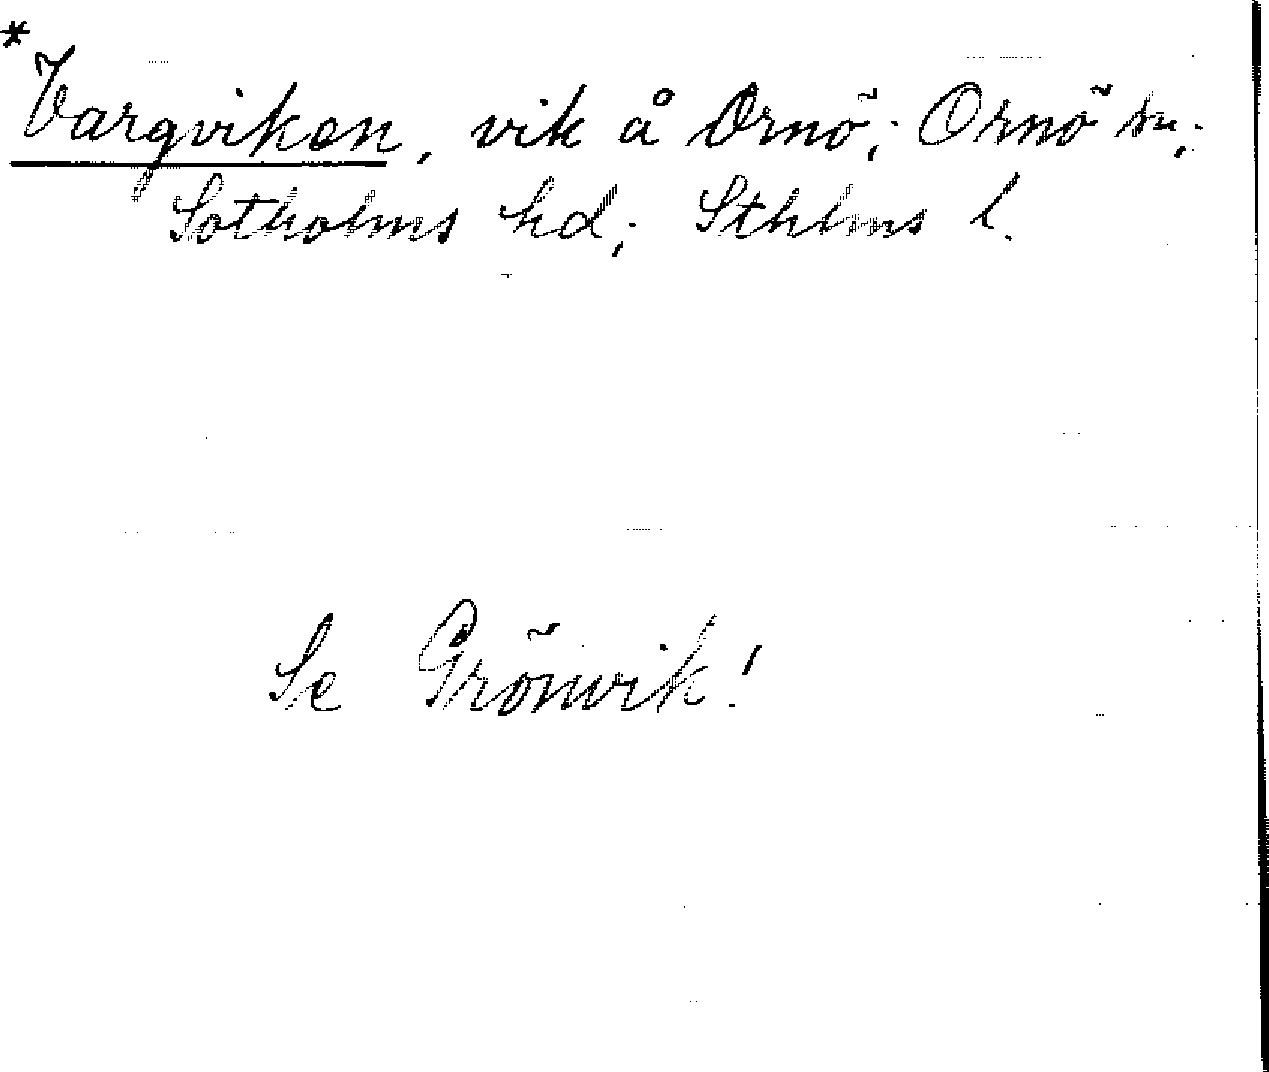 *Vargviken, vik å Ornö; Ornö sn;
Sotholms hd; Sthlms l.
Se Grönvik!